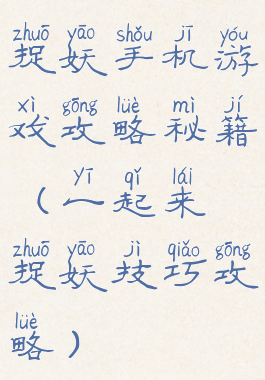 zhuō yāo shǒu jī yóu
捉妖手机游
xì gōng lüè mì jí
戏攻略秘籍
yī qǐ lái
（一起来
zhuō yāo jì qiǎo gōng
捉妖技巧攻
lüè
略）